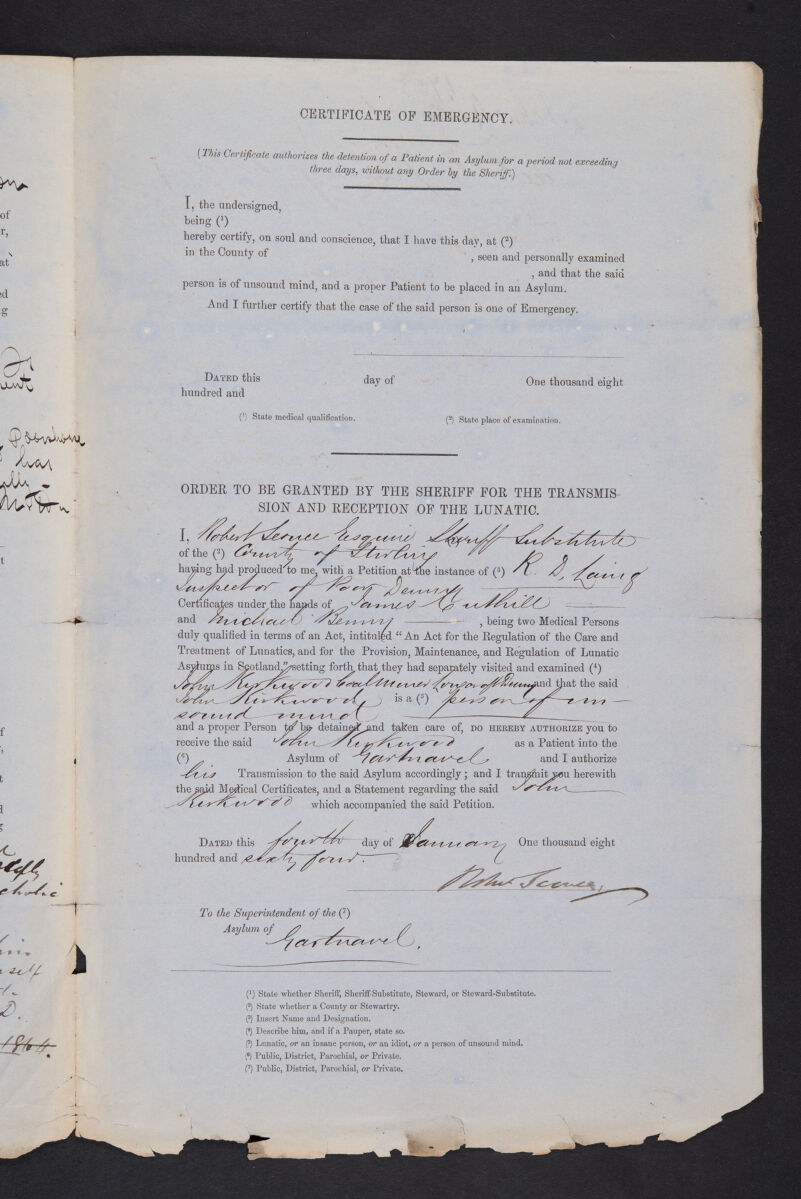 CERTIFICATE OF EMERGENCY.
(This Certificate authorizes the detention of a Patient in an Asylum for a period not exceeding
three days, without any Order by the Sheriff.)
I, the undersigned,
being (¹)
hereby certify, on soul and conscience, that I have this day, at (²)
in the County of , seen and personally examined
, and that the said
person is of unsound mind, and a proper Patient to be placed in an Asylum.
And I further certify that the case of the said person is one of Emergency.
DATED this day of One thousand eight
hundred and
(¹) State medical qualification. (²) State place of examination.
ORDER TO BE GRANTED BY THE SHERIFF FOR THE TRANSMIS-
SION AND RECEPTION OF THE LUNATIC.
I, Robert Sconce Esquire Sheriff Substitute
of the (²) County of Stirling
having had produced to me, with a Petition at the instance of (³) R. D. Laing
Inspector of Poor Denny
Certificates under the hands of James Cuthill
and Michael Benny , being two Medical Persons
duly qualified in terms of an Act, intituled "An Act for the Regulation of the Care and
Treatment of Lunatics, and for the Provision, Maintenance, and Regulation of Lunatic
Asylums in Scotland," setting forth that they had separately visited and examined (⁴)
John Kirkwood Coal Miner and that the said
John Kirkwood is a (⁵) person of un-
sound mind
and a proper Person to be detained and taken care of, DO HEREBY AUTHORIZE you to
receive the said John Kirkwood as a Patient into the
(⁶) Asylum of Gartnavel and I authorize
his Transmission to the said Asylum accordingly; and I transmit you herewith
the said Medical Certificates, and a Statement regarding the said John
Kirkwood which accompanied the said Petition.
DATED this fourth day of January One thousand eight
hundred and sixty four.
Robert Sconce
To the Superintendent of the (⁷)
Asylum of Gartnavel.
(¹) State whether Sheriff, Sheriff-Substitute, Steward, or Steward-Substitute.
(²) State whether a County or Stewartry.
(³) Insert Name and Designation.
(⁴) Describe him, and if a Pauper, state so.
(⁵) Lunatic, or an insane person, or an idiot, or a person of unsound mind.
(⁶) Public, District, Parochial, or Private.
(⁷) Public, District, Parochial, or Private.